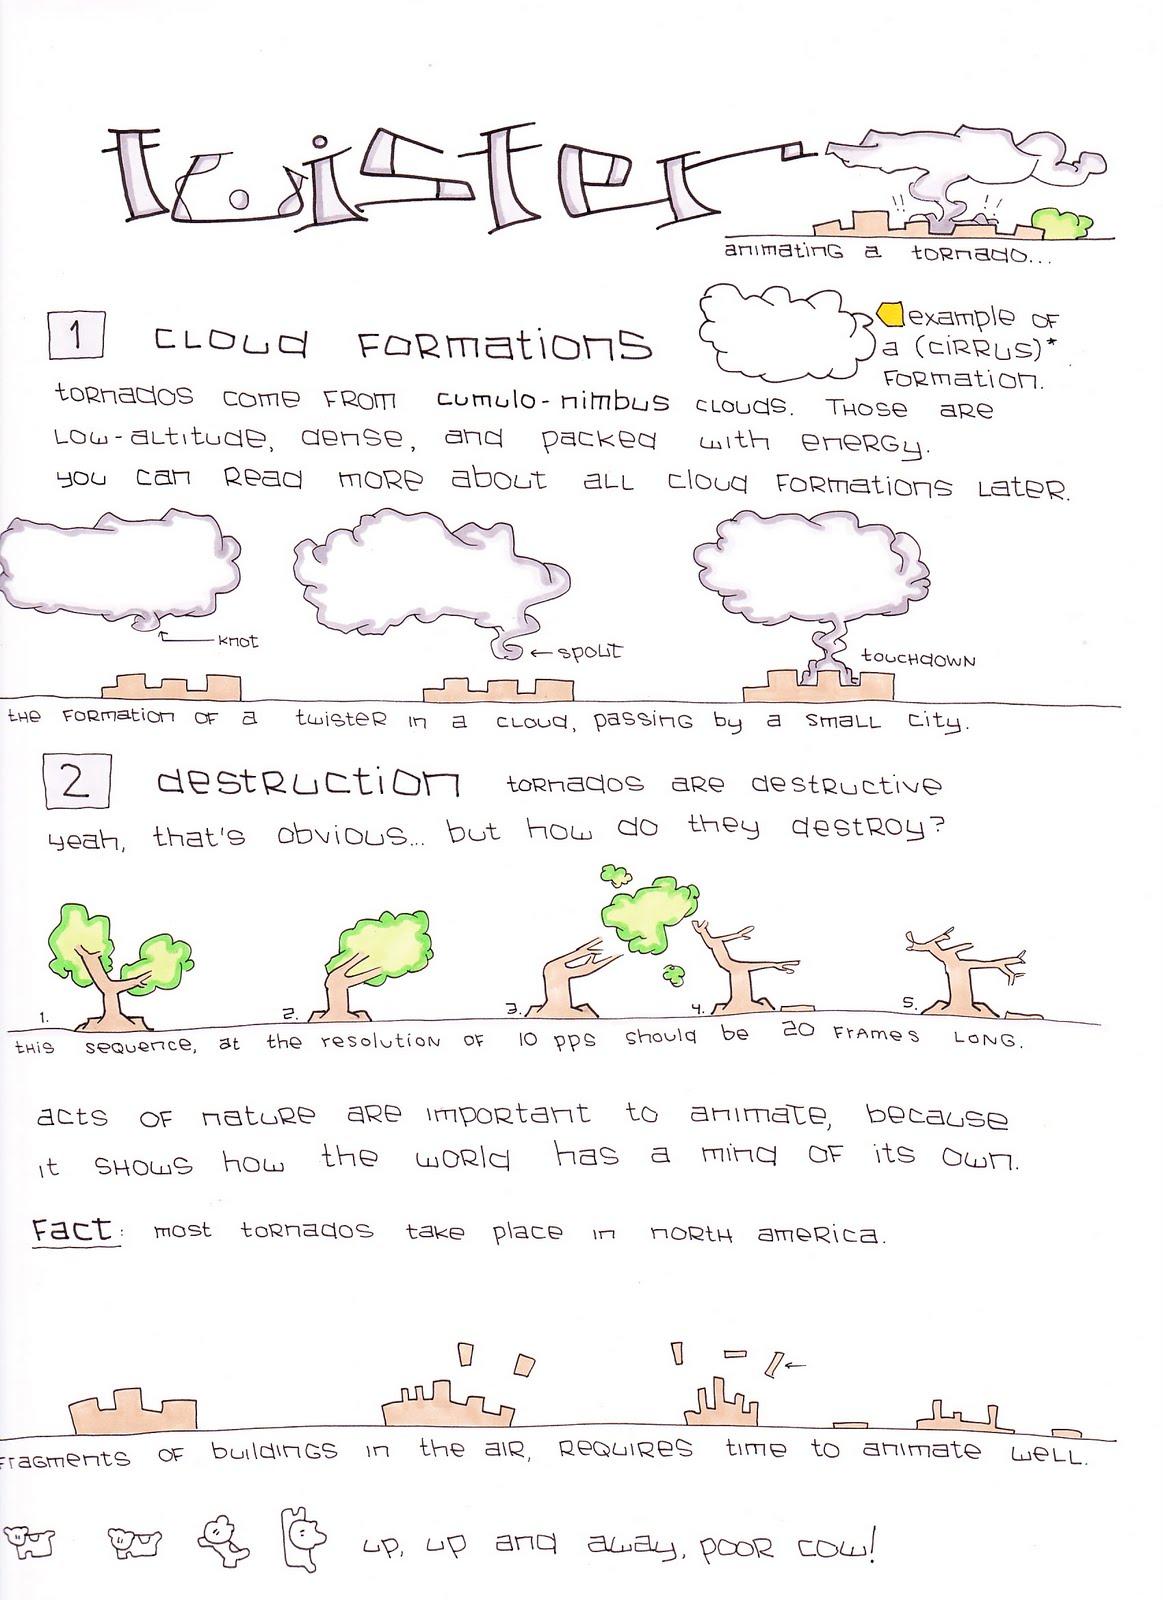 twister
animating a tornado...
1 cloud formations
example of
a (cirrus)*
formation.
tornados come from cumulo-nimbus clouds. those are
low-altitude, dense, and packed with energy.
you can read more about all cloud formations later.
knot
spout
touchdown
the formation of a twister in a cloud, passing by a small city.
2 destruction tornados are destructive
yeah, that's obvious... but how do they destroy?
1. 2. 3. 4. 5.
this sequence, at the resolution of 10 pps should be 20 frames long.
acts of nature are important to animate, because
it shows how the world has a mind of its own.
Fact: most tornados take place in north america.
fragments of buildings in the air, requires time to animate well.
up, up and away, poor cow!